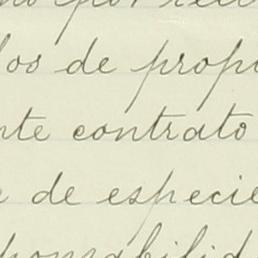 no por
los de propi
nte contrato
e de especie
ponsabilid